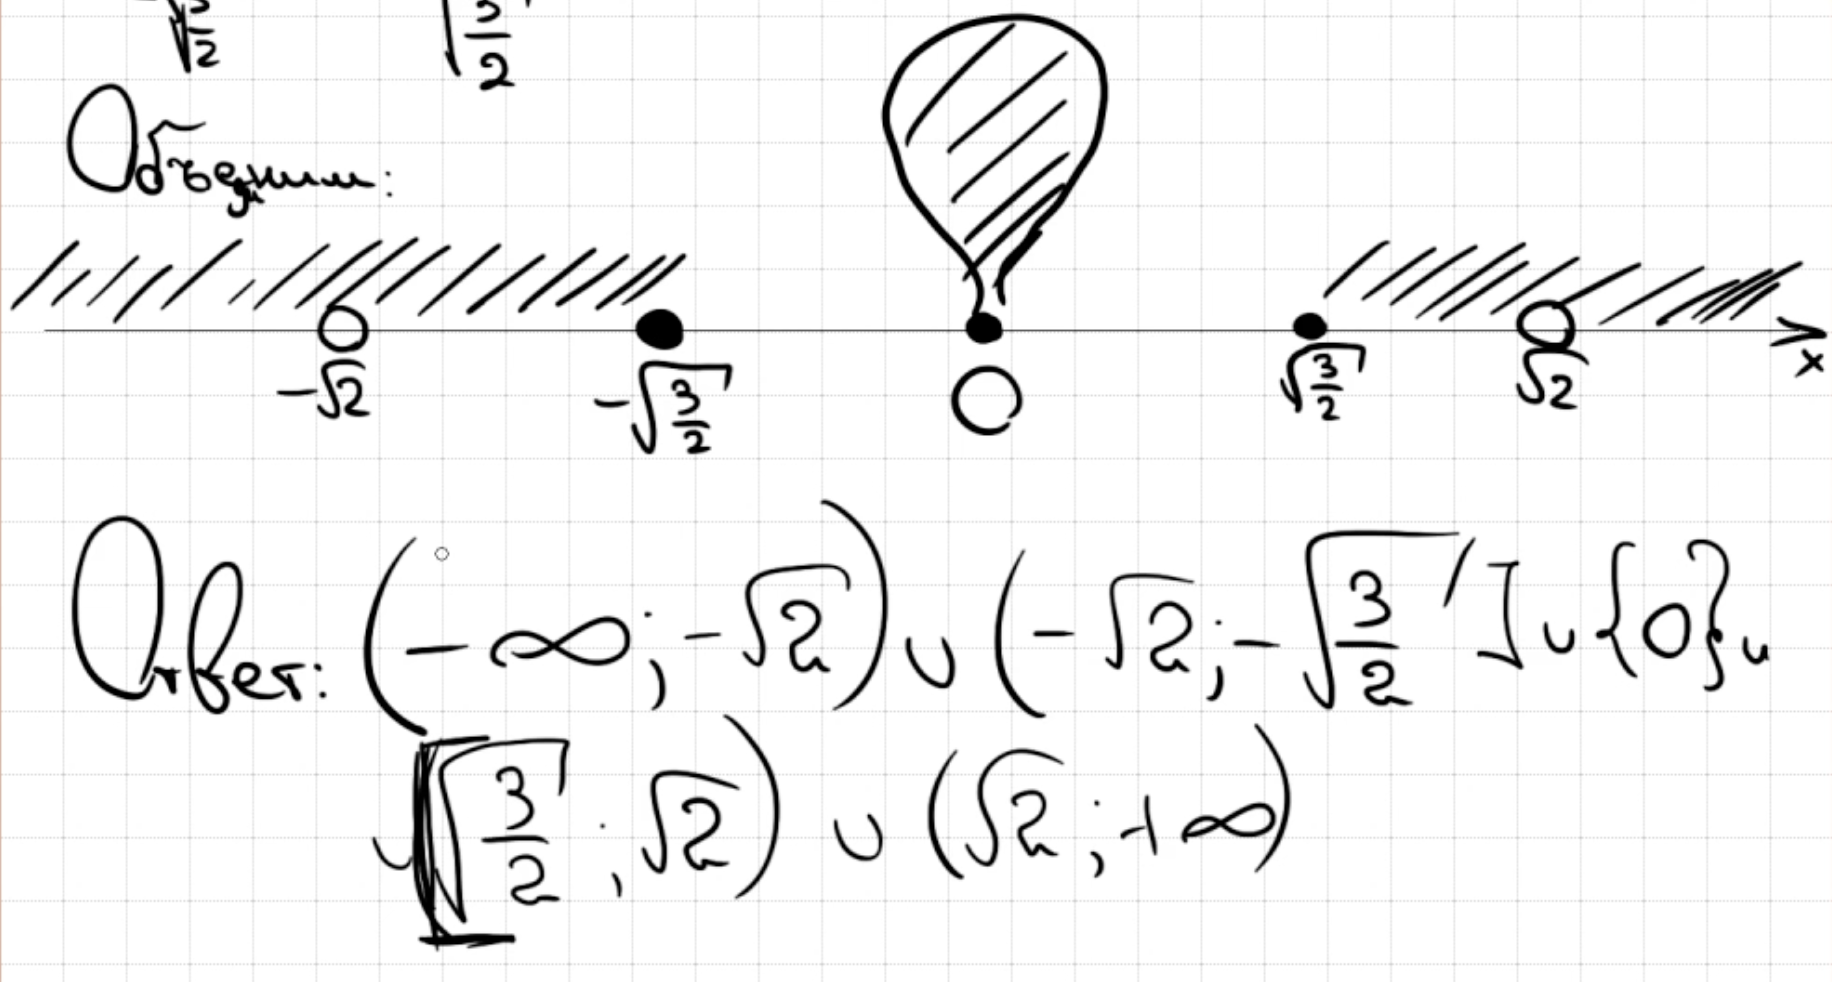 √3/2 √3/2
Объединим:
-√2 -√(3/2) 0 √(3/2) √2 x
Ответ: (-∞; -√2) ∪ (-√2; -√(3/2)] ∪ {0} ∪
∪ [√(3/2); √2) ∪ (√2; +∞)